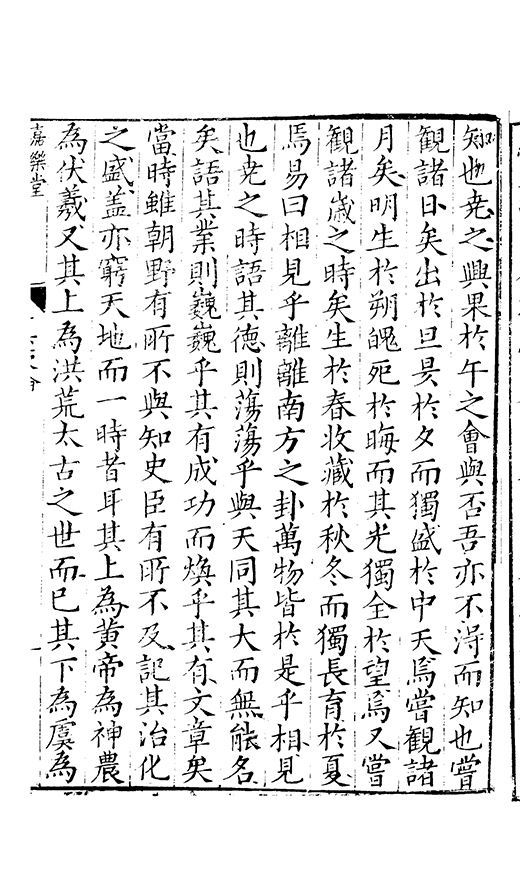 知也尭之興果於午之會與否吾亦不淂而知也嘗
觀諸日矣出於旦昃於夕而獨盛於中天焉嘗觀諸
月矣明生於朔魄死於晦而其光獨全於望焉又嘗
觀諸歳之時矣生於春收藏於秋冬而獨長育於夏
焉易曰相見乎離離南方之卦萬物皆於是乎相見
也尭之時語其德則蕩蕩乎與天同其大而無能名
矣語其業則巍巍乎其有成功而煥乎其有文章矣
當時雖朝野有所不與知史臣有所不及記其治化
之盛盖亦窮天地而一時者耳其上為黄帝為神農
為伏羲又其上為洪荒太古之世而已其下為虞為
嘉樂堂